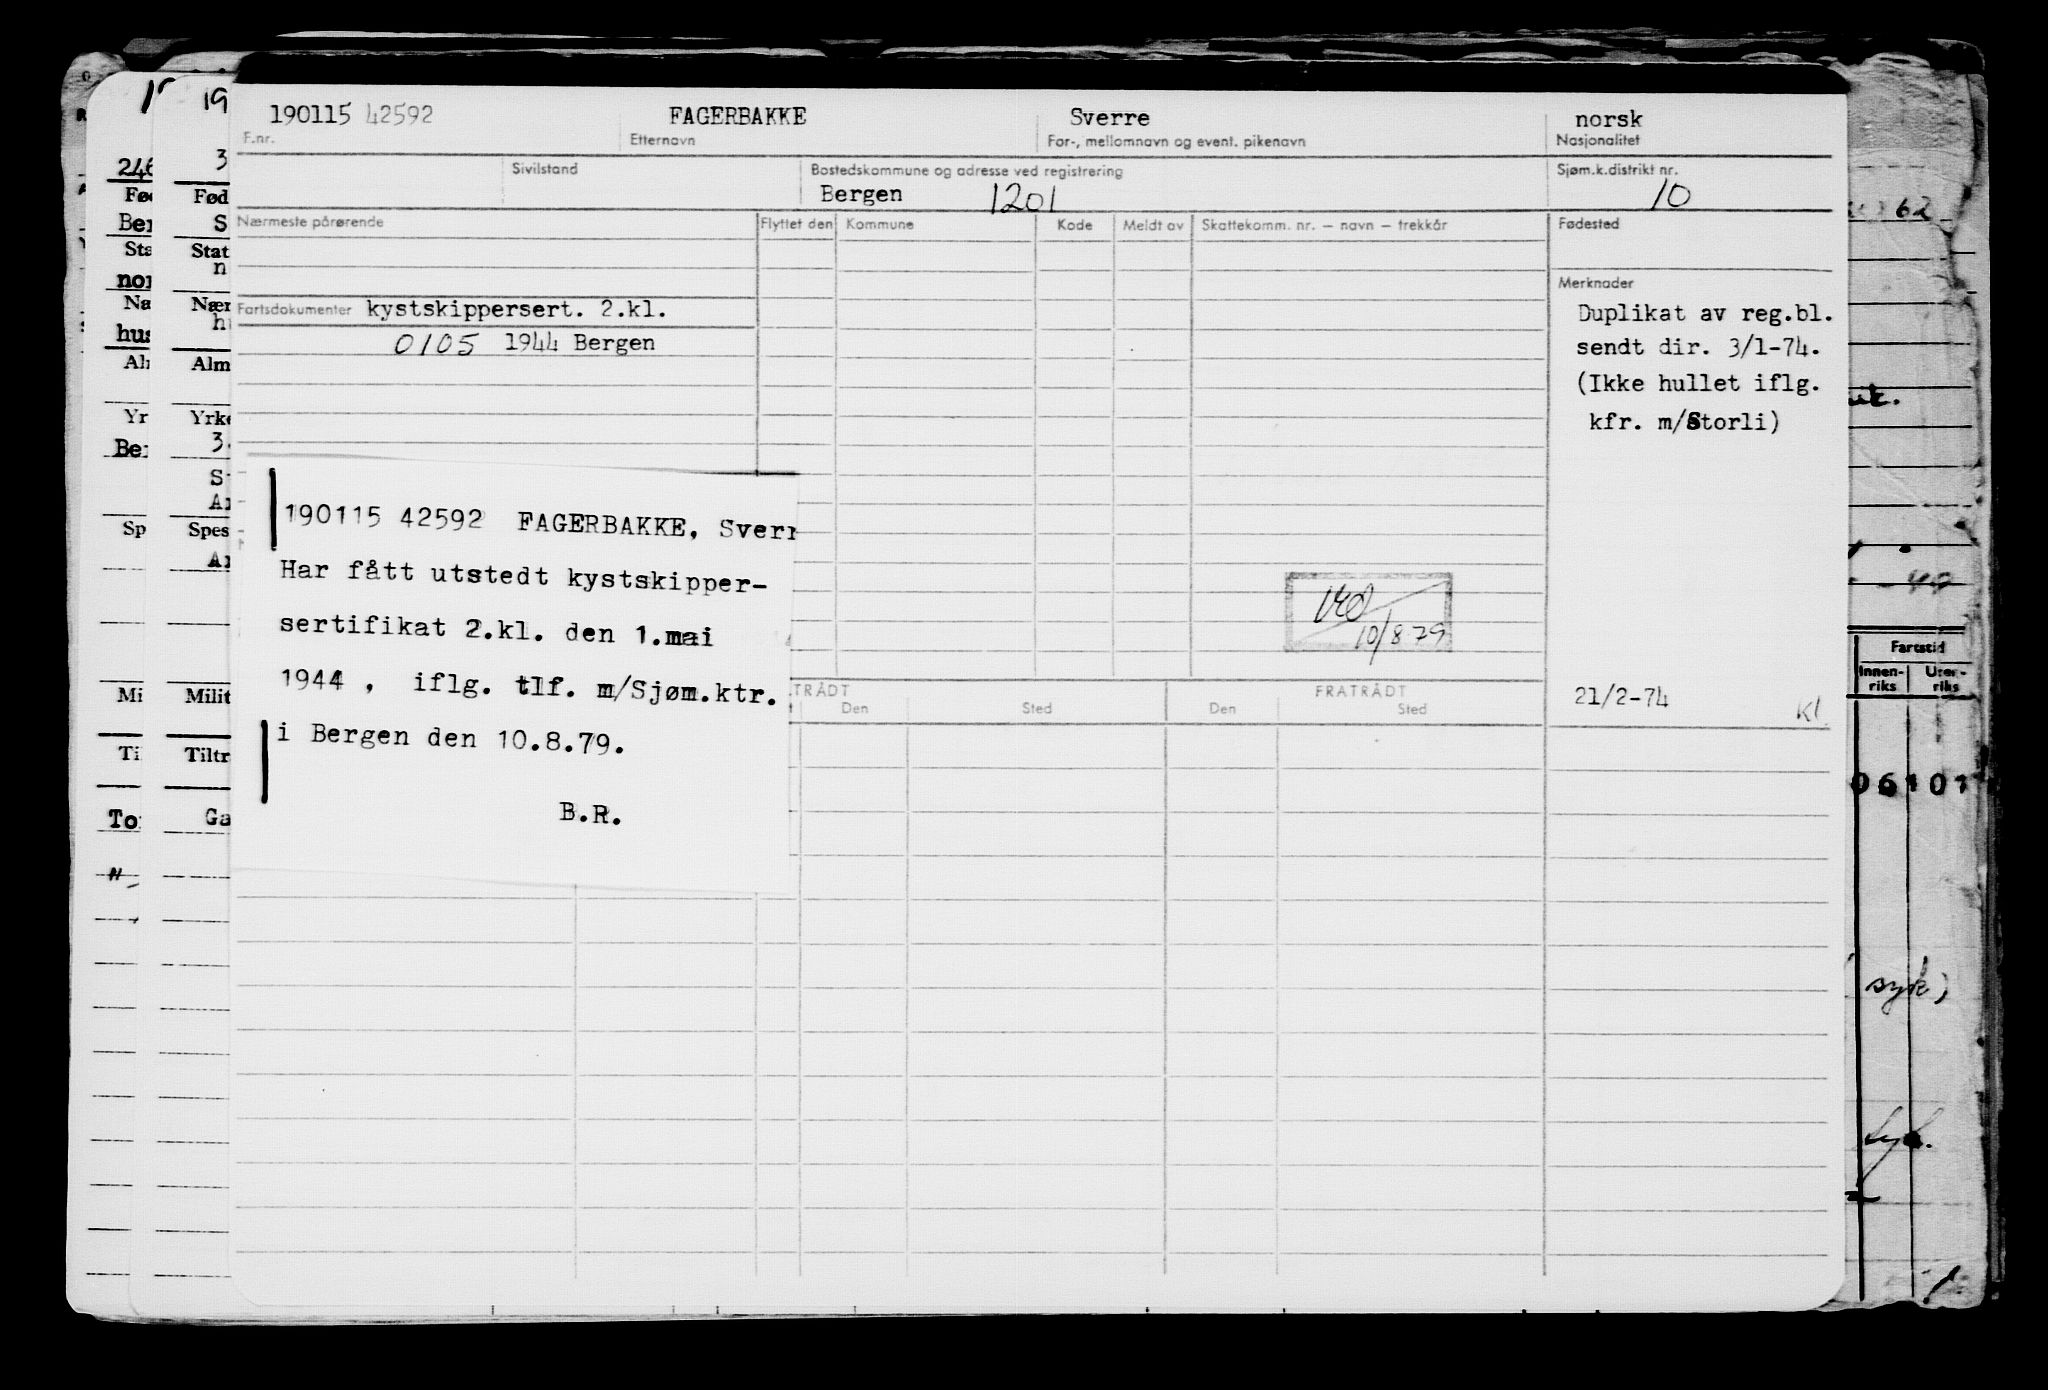 190115 42592 FAGERBAKKE Sverre norsk
F.nr. Etternavn For-, mellomnavn og event. pikenavn Nasjonalitet
Sivilstand Bostedskommune og adresse ved registrering Sjøm.k.distrikt nr.
Bergen 1201 10
Nærmeste pårørende Flyttet den Kommune Kode Meldt av Skattekomm. nr. – navn – trekkår Fødested
Merknader
Fartsdokumenter kystskippersert. 2.kl.
0105 1944 Bergen
Duplikat av reg.bl.
sendt dir. 3/1-74.
(Ikke hullet iflg.
kfr. m/Storli)
190115 42592 FAGERBAKKE, Sverr
Har fått utstedt kystskipper-
sertifikat 2.kl. den 1.mai
1944 , iflg. tlf. m/Sjøm.ktr.
i Bergen den 10.8.79.
B.R.
10/8 79
TRÅDT FRATRÅDT
Den Sted Den Sted
21/2-74 Kl.
19
3
246
Fød
Ber
S
Sta
Stat
n
nor
Na
Nær
h
hus
Al
Alm
Yr
Yrke
3.
Ber
S
Ar
Sp
Spes
Ar
Mi
Milit
Ti
Tiltr
To
Ga
"
62
Fartstid
Innen-
riks
Uten-
riks
06101
syk)